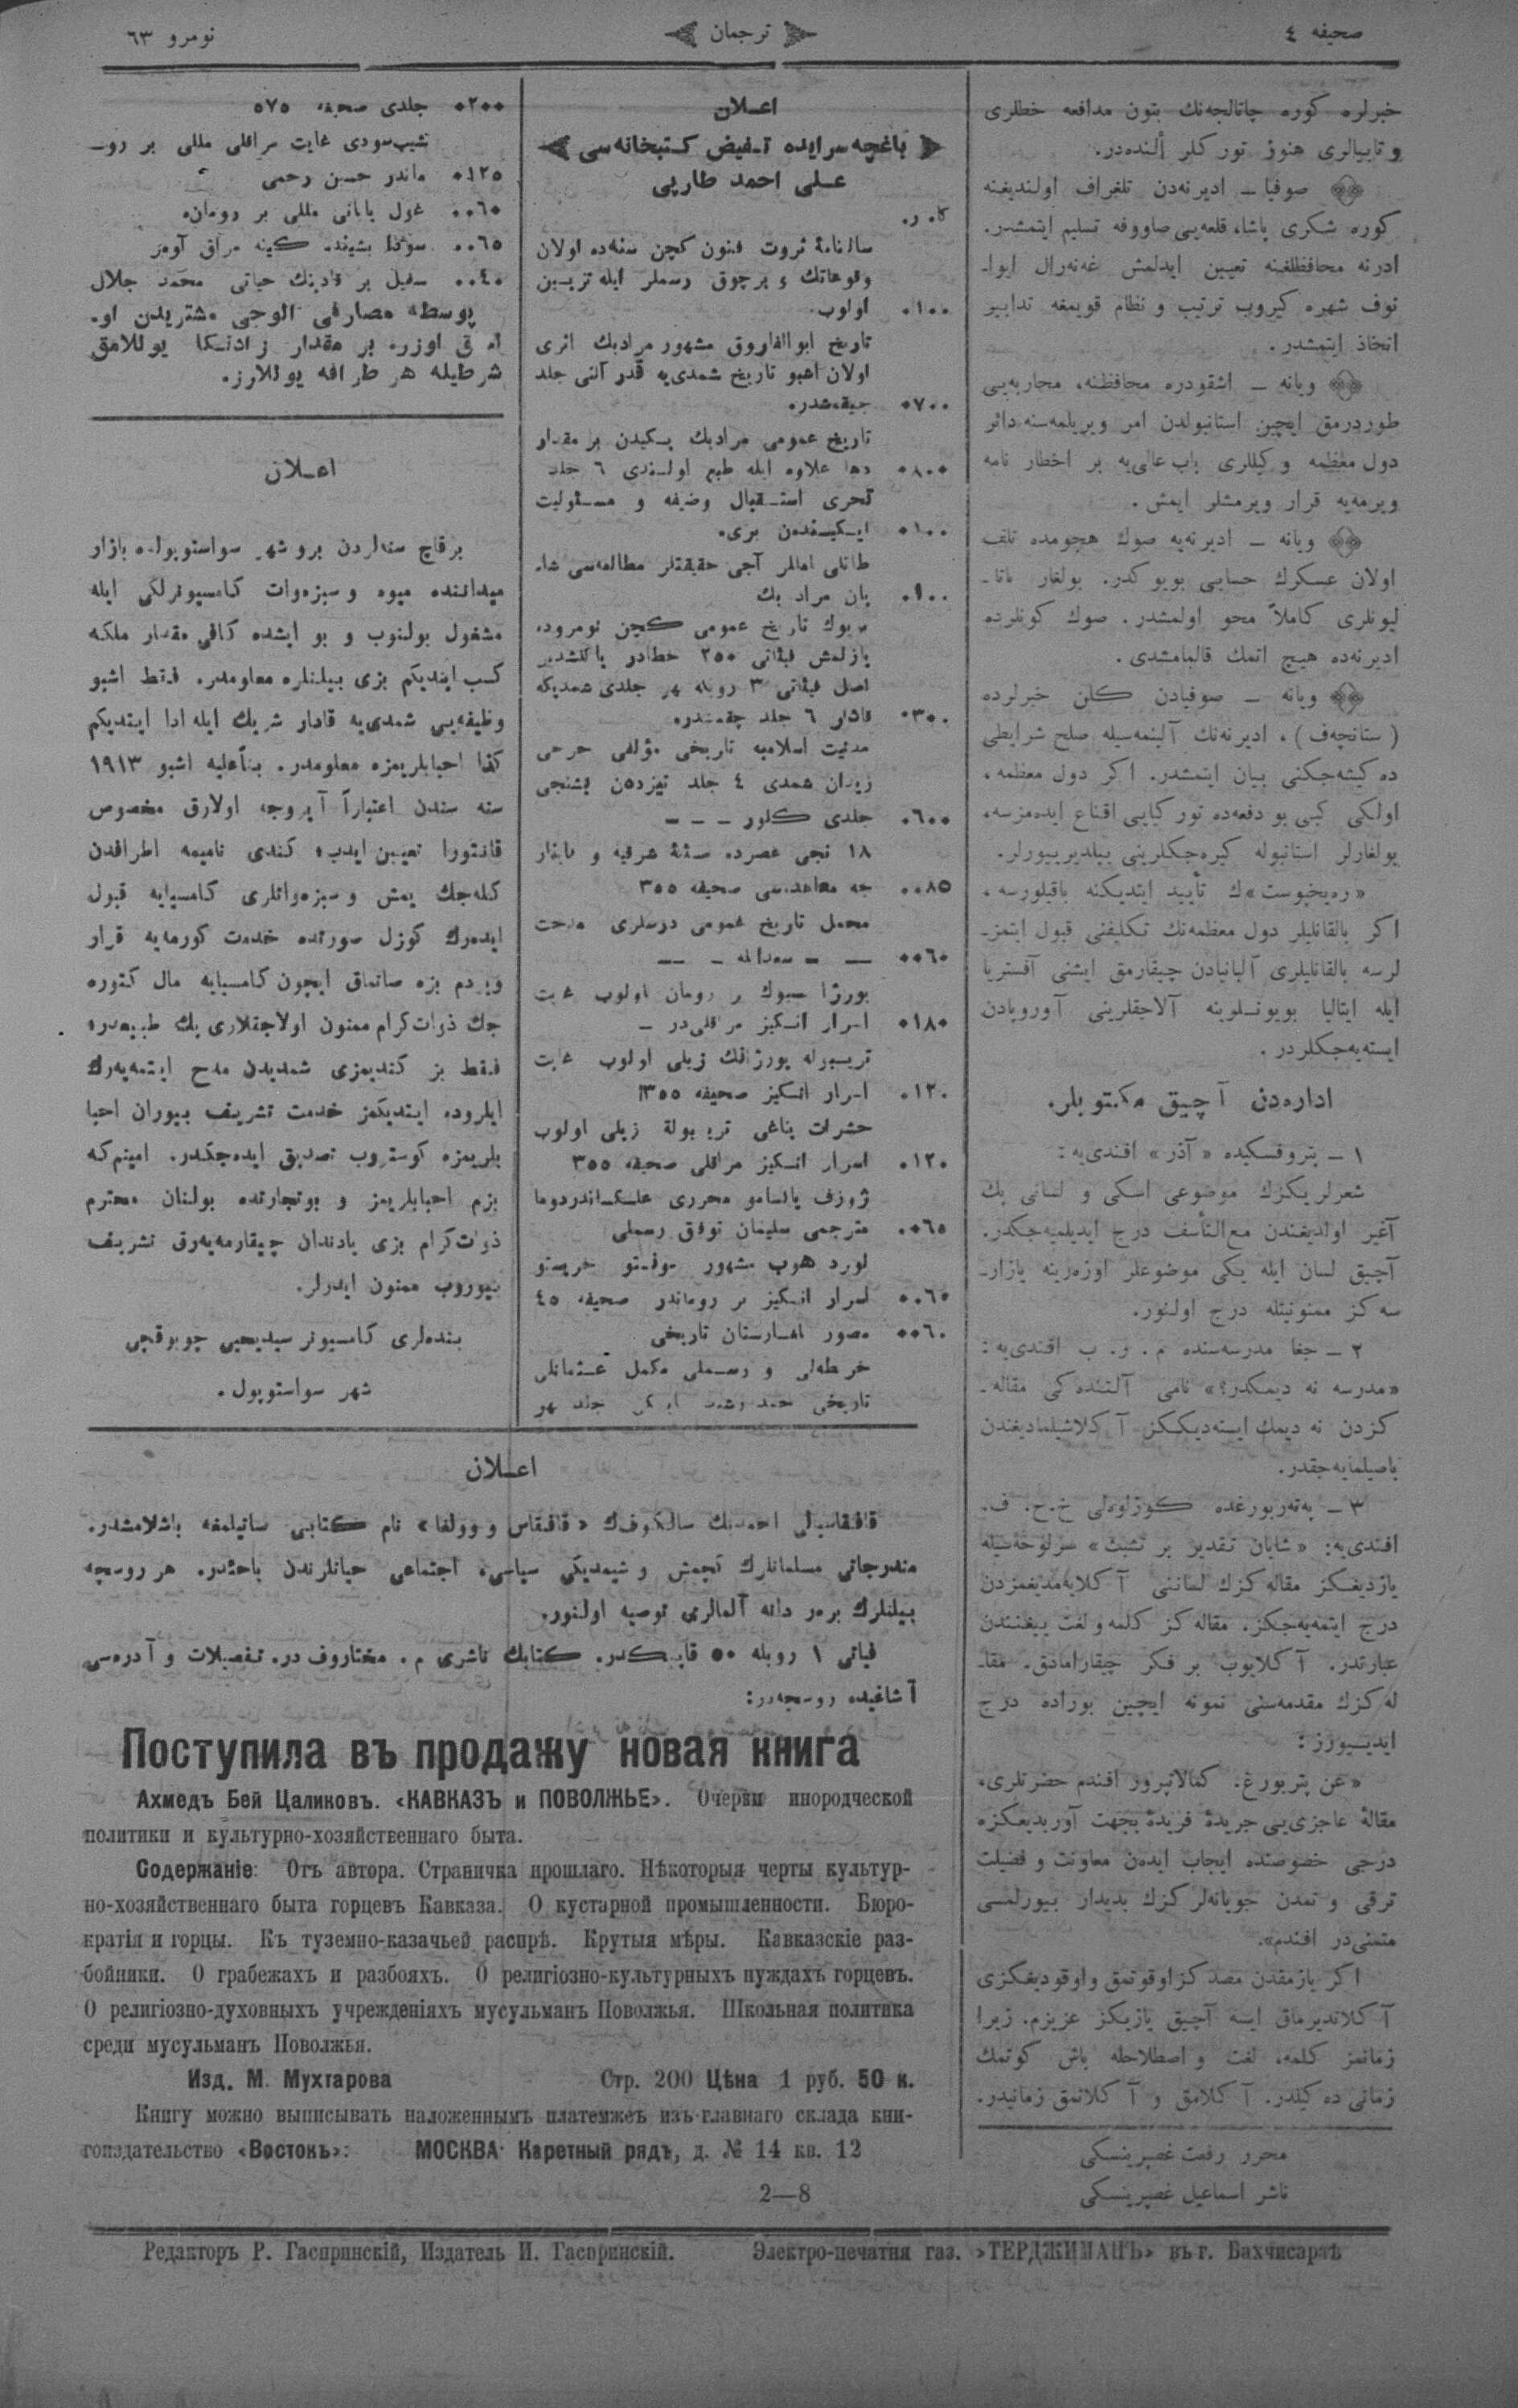 صحیفه ٤
ترجمان
نومرو ٦٣
خبرلره كوره چاتالجه‌نك بتون مدافعه خطلری
و تابیالری هنوز توركلر ألنده‌در.
صوفیا ـ ادیرنه‌دن تلغراف اولندیغنه
كوره شكری پاشا، قلعه‌یی صاووفه تسلیم ایتمشدر.
ادرنه محافظلغنه تعیین ایدلمش غه‌نه‌رال ایوا۔
نوف شهره كیروب ترتیب و نظام قویمغه تدابیر
اتخاذ ایتمشدر.
ویانه ـ اشقودره محافظنه، محاربه‌یی
طوردرمق ایچین استانبولدن امر ویریلمه‌سنه دائر
دول معظمه وكیللری باب عالی‌یه بر اخطار نامه
ویرمه‌یه قرار ویرمشلر ایمش.
ویانه ـ ادیرنه‌یه صوك هجومده تلف
اولان عسكرك حسابی بویوكدر. بولغار باتا۔
لیونلری كاملاً محو اولمشدر. صوك كونلرده
ادیرنه‌ده هیچ اتمك قالمامشدی.
ویانه ـ صوفیادن كلن خبرلرده
(ستانچه‌ف)، ادیرنه‌نك آلینمه‌سیله صلح شرایطی
ده‌كیشه‌جكنی بیان ایتمشدر. اكر دول معظمه،
اولكی كبی بو دفعه‌ده توركیایی اقناع ایده‌مزسه،
بولغارلر استانبوله كیره‌جكلرینی بیلدیرییورلر.
«ره‌یخپوست»ك تأیید ایتدیكنه باقیلورسه،
اكر بالقانلیلر دول معظمه‌نك تكلیفنی قبول ایتمز۔
لرسه بالقانلیلری آلبانیادن چیقارمق ایشنی آفستریا
ایله ایتالیا بویونلرینه آلاجقلرینی آوروپادن
ایسته‌یه‌جكلردر.
اداره‌دن آچیق مكتوبلر.
١ ـ پتروفسكیده «آذر» افندی‌یه:
شعرلریكزك موضوعی اسكی و لسانی پك
آغیر اولدیغندن مع‌التأسف درج ایدیلمیه‌جكدر.
آچیق لسان ایله یكی موضوعلر اوزه‌رینه یازار۔
سه‌كز ممنونیتله درج اولنور.
٢ ـ جغا مدرسه‌سنده م. ر. ب افندی‌یه:
«مدرسه نه دیمكدر؟» نامی آلتنده‌كی مقاله۔
كزدن نه دیمك ایسته‌دیككز آكلاشیلمادیغندن
باصیلمایه‌جقدر.
٣ ـ په‌ته‌ربورغده كوزلوه‌لی خ.ح. ف.
افندی‌یه: «شایان تقدیر بر تشبث» سرلوحه‌سیله
یازدیغكز مقاله‌كزك لساننی آكلایه‌مدیغمزدن
درج ایتمه‌یه‌جكز. مقاله‌كز كلمه و لغت ییغنندن
عبارتدر. آكلایوب بر فكر چیقارامادق. مقا۔
له‌كزك مقدمه‌سنی نمونه ایچین بوراده درج
ایدییورز:
«عن پتربورغ. كمالاتپرور افندم حضرتلری،
مقالهٔ عاجزی‌یی جریدهٔ فریدهٔ
درجی خصوصنده ایجاب ایده‌ن معاونت و فضیلت
ترقی و تمدن بیورلمسی
متمنی‌در افندم».
اكر یازمقدن مقصدكز اوقوتمق و اوقودیغكزی
آكلاتدیرماق ایسه آچیق یازیكز عزیزم. زیرا
زمانمز كلمه، لغت و اصطلاحله باش كوتمك
زمانی ده‌كلدر. آكلامق و آكلاتمق زمانیدر.
محرر رفعت غصپرینسكی
ناشر اسماعیل غصپرینسكی
اعلان
باغچه‌سرایده تفیض كتبخانه‌سی
علی احمد طارپی
سالنامهٔ ثروت فنون كچن سنه‌ده اولان
وقوعاتك و برچوق رسملر ایله تزیین
اولوب. ١٠٠
تاریخ ابوالفاروق مشهور مرادبك اثری
اولان اشبو تاریخ شمدی‌یه قدر آلتی جلد
چیقمشدر. ٧٠٠
تاریخ عمومی مرادبك یكیدن بر مقدار
دها علاوه ایله طبع اولندی ٦ جلد ٨٠٠
تحری استقبال وضیفه و مسئولیت
ایكیسندن بری. ١٠٠
طاتلی املار آجی حقیقتلر مطالعه‌سی شا۔
یان مراد بك
بیوك تاریخ عمومی كچن نومروده
یازلمش فیئاتی ٢٥٠ خطادر یاكلشدیر
اصل فیئاتی ٣ روبله هر جلدی شمدیكه
قادار ٦ جلد چقمشدر. ٣٠٠
مدنیت اسلامیه تاریخی مؤلفی جرجی
زیدان شمدی ٤ جلد تیزده‌ن بشنجی
جلدی كلور ـ ـ ـ ٦٠٠
١٨ نجی عصرده مسئلهٔ شرقیه و قاینار
جه معاهده‌سی صحیفه ٣٥٥
مجمل تاریخ عمومی درسلری مدحت
سعدالله
بورژا بیوك بر رومان اولوب غایت
اسرار انكیز مراقلی‌در ـ ١٨٠
تریبوله بورژانك زیلی اولوب غایت
اسرار انكیز صحیفه ٣٥٥ ١٢٠
حشرات یتاغی تریبولهٔ زیلی اولوب
اسرار انكیز مراقلی صحیفه ٣٥٥ ١٢٠
ژوزف بالسامو محرری علكساندردوما
مترجمی سلیمان توفیق رسملی
لورد هوب مشهور
اسرار انكیز بر روماندر صحیفه ٤٥
مصور تاریخی
خریطه‌لی و رسملی مكمل عثمانلی
تاریخی جلد هر
جلدی صحیفه ٥٧٥ ٢٠٠
نسیب‌سودی غایت مراقلی مللی بر رو۔
ماندر حسین رحمی ١٢٥
غول یابانی مللی بر رومان.
سوقاقده
سفیل بر قادینك حیاتی محمد جلال
پوسطه مصارفی الوجی مشتریدن او۔
لمق اوزره بر مقدار زادتكا یوللامق
شرطیله هر طرافه یوللارز.
اعلان
برقاچ سنه‌لردن برو شهر سواستوپولده بازار
میداننده میوه و سبزه‌وات كامسیونرلكی ایله
مشغول بولنوب و بو ایشده كافی مقدار ملكه
كسب ایتدیكم بزی بیلنلره معلومدر. فقط اشبو
وظیفه‌یی شمدی‌یه قادار شریك ایله ادا ایتدیكم
كذا احبابلریمزه معلومدر. بناًعلیه اشبو ١٩١٣
سنه سندن اعتباراً آیروجه اولارق مخصوص
قانتورا تعیین ایدب كندی نامیمه اطرافدن
كله‌جك یمش و سبزه‌واتلری كامسیایه قبول
ایده‌رك كوزل صورتده خدمت كورمه‌یه قرار
ویردم بزه صاتماق ایچون كامسیایه مال كتوره
جك ذوات كرام ممنون اولاجقلاری پك طبیعدر.
فقط بز كندیمزی شمدیدن مدح ایتمه‌یه‌رك
ایلروده ایتدیكمز خدمت تشریف بیوران احبا
بلریمزه كوستروب تصدیق ایده‌جكدر. امینم كه
بزم احبابلریمز و بوتجارتده بولنان محترم
ذوات كرام بزی یادندان چیقارمه‌یه‌رق تشریف
بیوروب ممنون ایدرلر.
بنده‌لری كامسیونر سیدیحیی چوبوقچی
شهر سواستوپول.
اعلان
قافقاسیالی احمدبك سالكوف‌ك «قافقاس و وولغا» نام كتابی ساتیلمغه باشلامشدر.
مندرجاتی مسلمانلرك كچمش و شیمدیكی سیاسی، اجتماعی حیاتلرندن باحثدر. هر روسچه
بیلنلرك برر دانه آلمالری توصیه اولنور.
فیاتی ١ روبله ٥٠ قاپیكدر. كتابك ناشری م. مختاروف در. تفصیلات و آدره‌سی
آشاغیده روسچه‌در:
Поступила въ продажу новая книга
Ахмедъ Бей Цаликовъ. «КАВКАЗЪ и ПОВОЛЖЬЕ». Очерки инородческой
политики и культурно-хозяйственнаго быта.
Содержаніе: Отъ автора. Страничка прошлаго. Нѣкоторыя черты культур-
но-хозяйственнаго быта горцевъ Кавказа. О кустарной промышленности. Бюро-
кратія и горцы. Къ туземно-казачьей распрѣ. Крутыя мѣры. Кавказскіе раз-
бойники. О грабежахъ и разбояхъ. О религіозно-культурныхъ нуждахъ горцевъ.
О религіозно-духовныхъ учрежденіяхъ мусульманъ Поволжья. Школьная политика
среди мусульманъ Поволжья.
Изд. М. Мухтарова Стр. 200 Цѣна 1 руб. 50 к.
Книгу можно выписывать наложеннымъ платежжеъ изъ главнаго склада кни-
гоиздательство «Востокъ»: МОСКВА Каретный рядъ, д. № 14 кв. 12
2—8
Редакторъ Р. Гаспринскій, Издатель И. Гаспринскій. Электро-печатня газ. »ТЕРДЖИМАНЪ» въ г. Бахчисараѣ